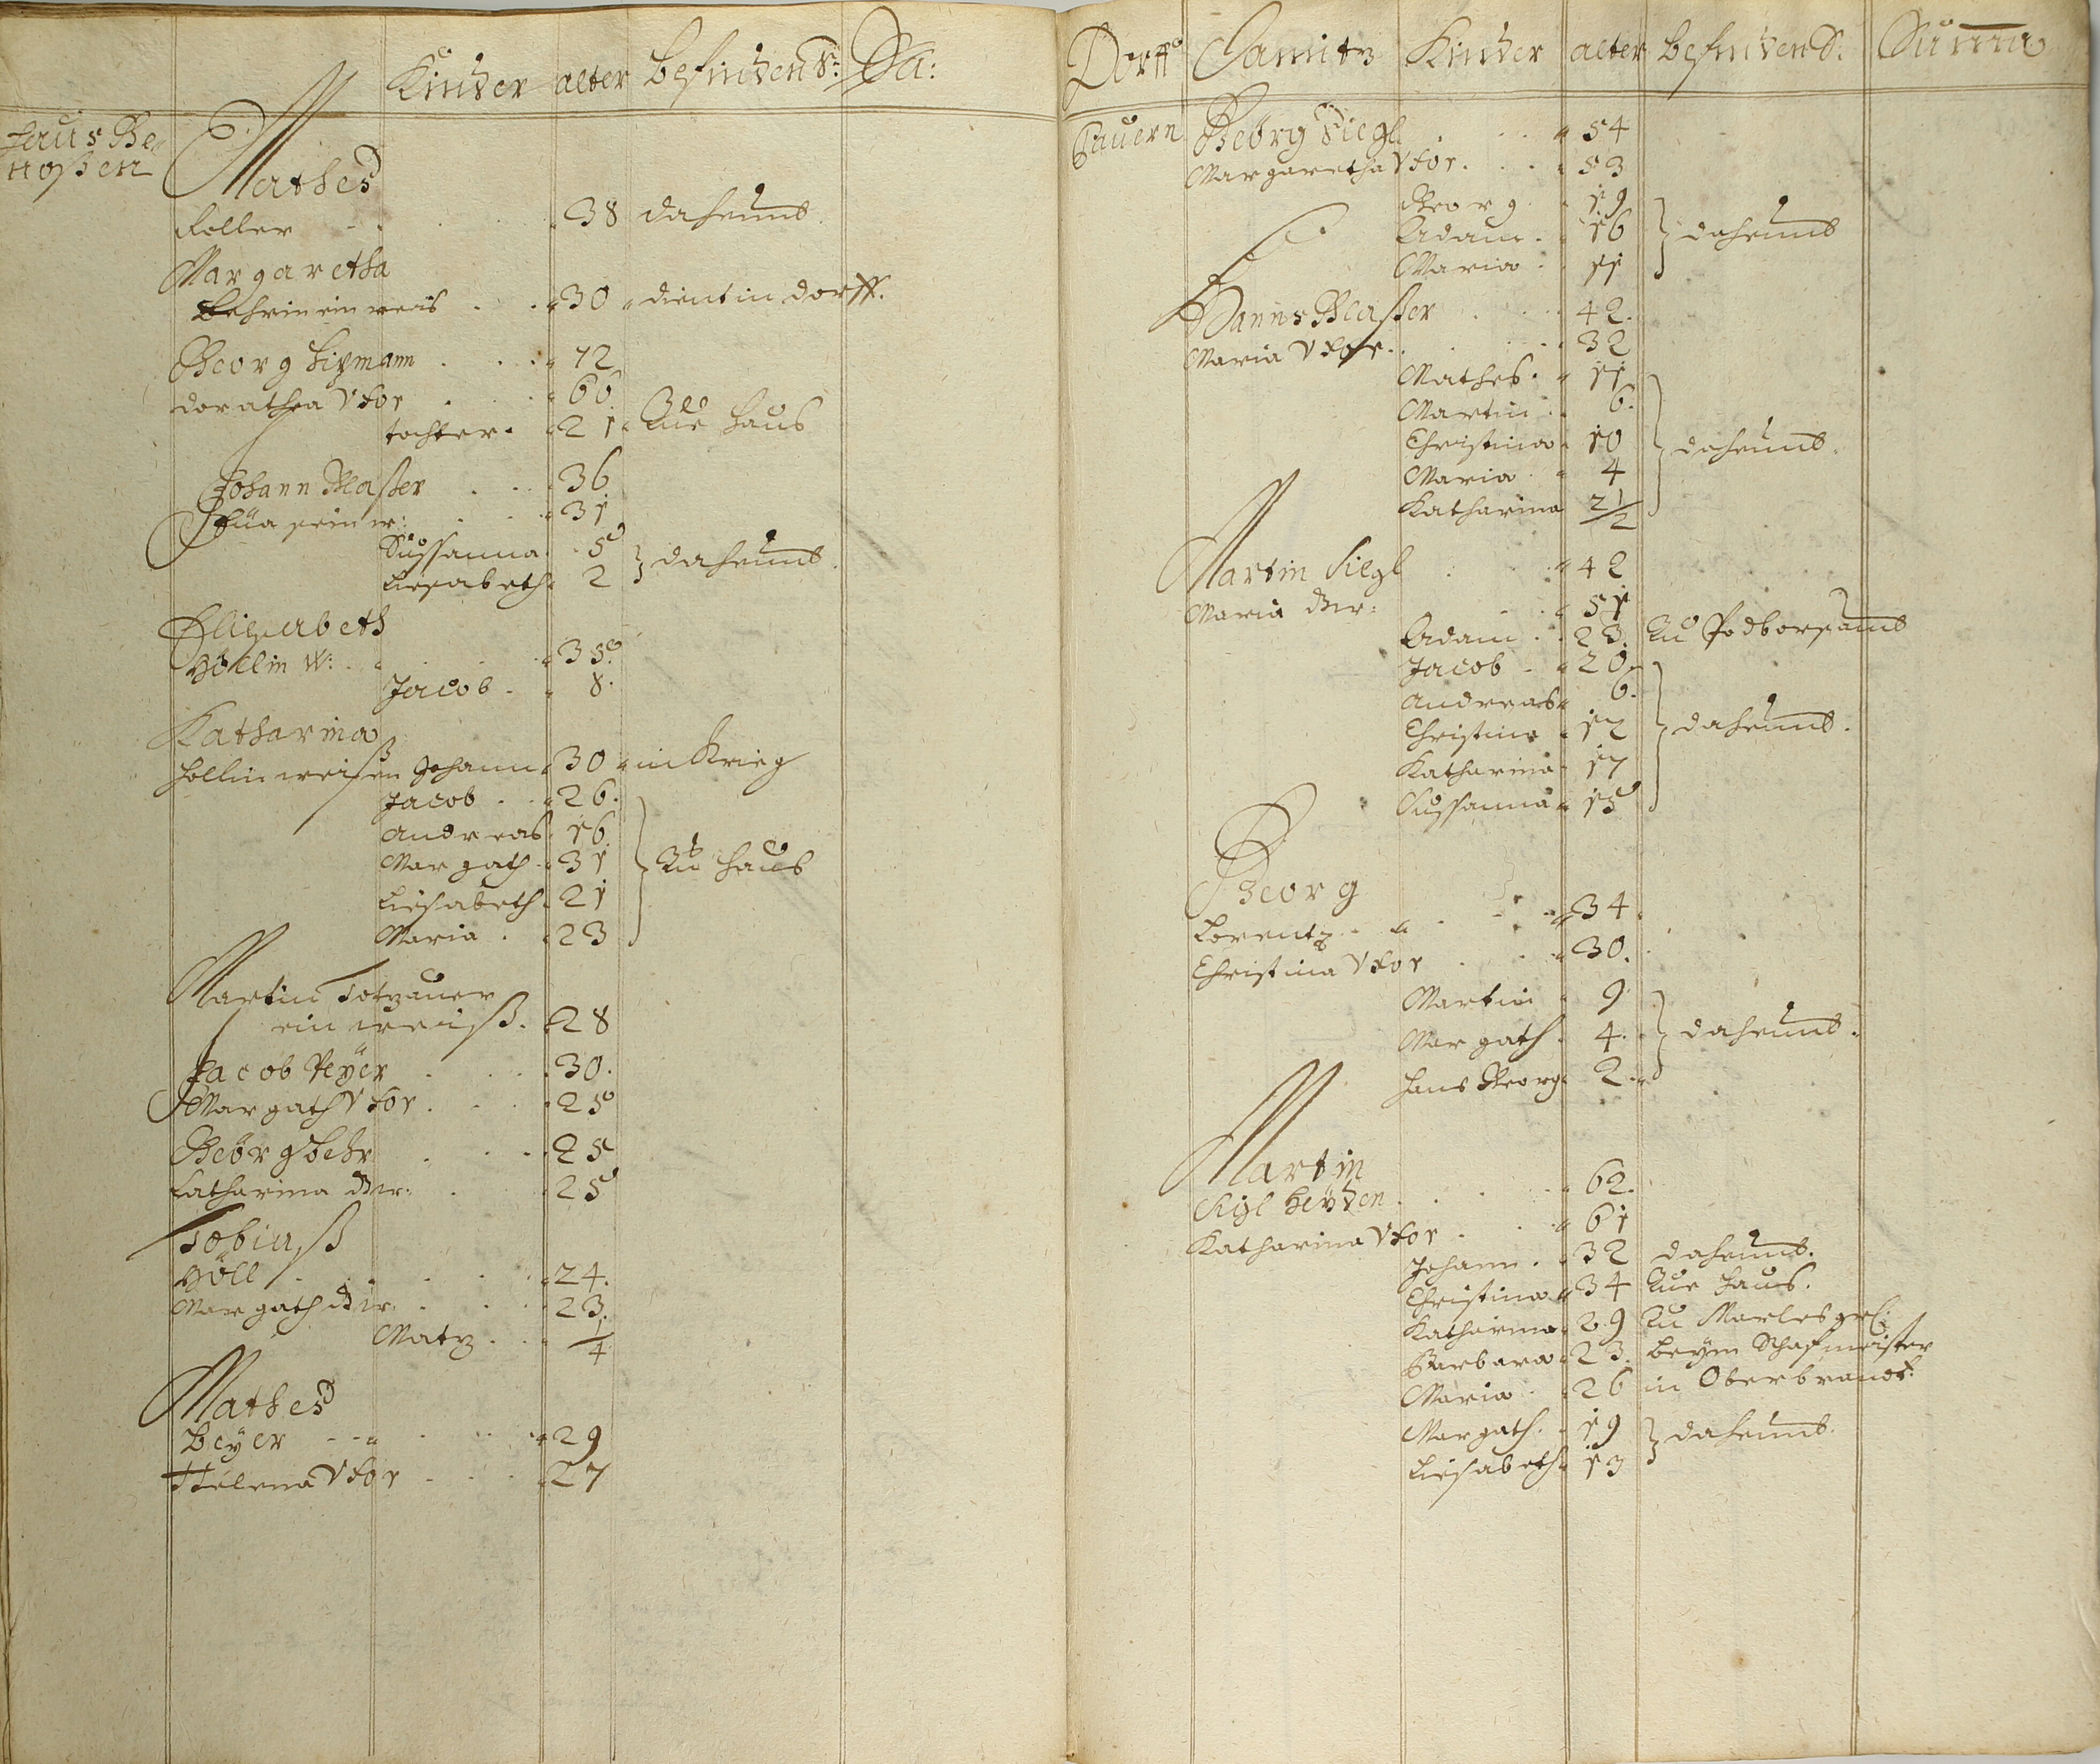 Kinder alter befinden S: Sa:
Haus Ge
noßen
Mathes
Koller 38 daheimb
Margaretha
Behrin ein weis 30 dient in dorff.
Georg Lipmann 72
dorathea Vxor 60
tochter 21 Zue Haus
Johann Glaßer 36
Eua sein w: 31
Sussanna 5
Liesabeth 2 } daheimb
Elisabeth
Höllin W: 35
Jacob 8
Katharina
Hollin weißen Johann 30 in Krieg
Jacob 26
Andreas 16
Margath 31 } Zu Haus
Liesabeth 21
Maria 23
Martin Totzauer
ein weiß 28
Jacob Peÿer 30
Margath Vxor 25
Geörg Behr 25
Catharina Wr: 25
Tobiaß
Höll 24
Margath W: 23
Matz 1/4
Mathes
Beÿer 29
Helena Vxor 27
Dorff Camitz Kinder alter befinden S: Suma
Bauern Geörg Siegl 54
Margaretha Vxor 53
Georg 19
Adam 16 } daheimb
Maria 11
Hanns Glaßer 42
Maria Vxor 32
Mathes 11
Martin 6
Christina 10 } daheimb
Maria 4
Katharina 2 1/2
Martin Siegl 42
Maria Wr: 51
Adam 23 Zu Podborsamb
Jacob 20
Andreas 6
Christina 12 } daheimb
Katharina 17
Sussanna 15
Georg
Lorentz 34
Christina Vxor 30
Martin 9
Margath 4 } daheimb
Hans Georg 2
Martin
Sigl Beÿden 62
Katharina Vxor 61
Johann 32 daheimb
Christina 34 Zue Haus
Katharina 29 Zu Marlesgrl:
Barbara 23 beym Schafmeister
Maria 26 in Oberbrandt
Margath 19 } daheimb
Liesabeth 13